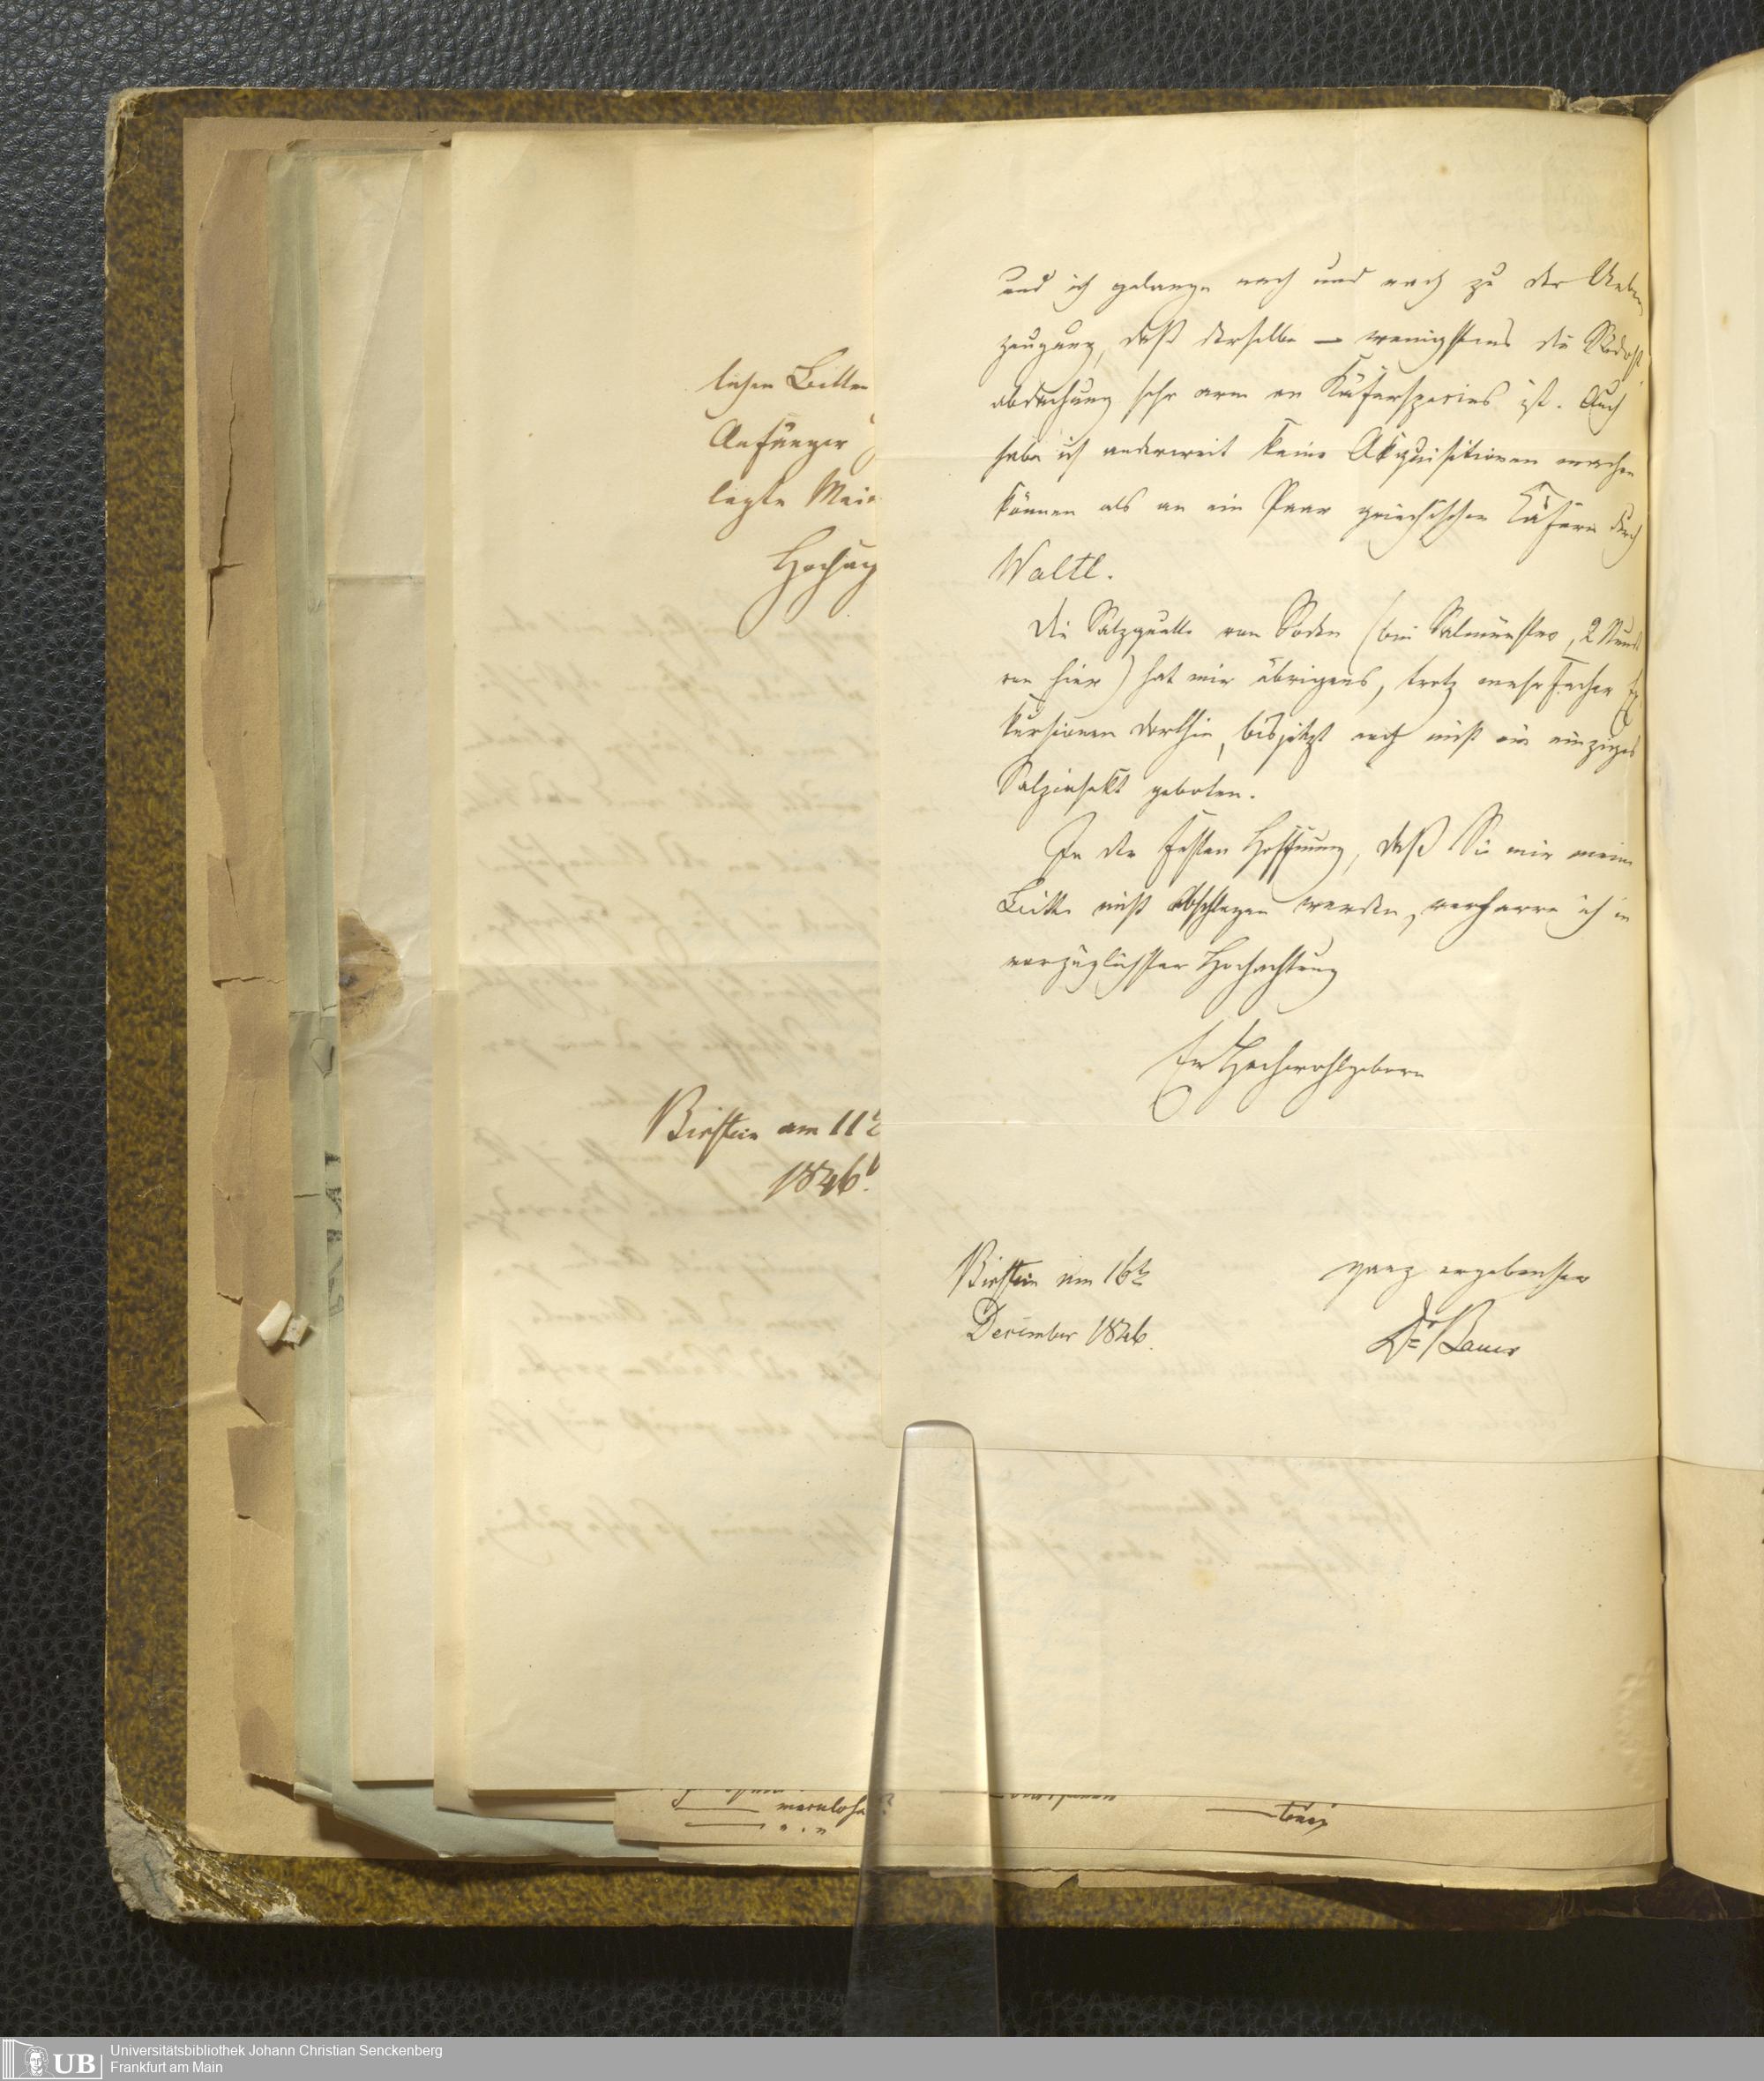 und ich gelange nach und nach zu der Ueber
zeugung, daß derselbe — wenigstens die Südost
abdachung sehr arm an Käferspecies ist. Auch
habe ich anderweit keine Akquisitionen machen
können als an ein Paar griechischen Käfern durch
Waltl.
Die Salzquelle von Soden (bei Salmünster, 2 Stund
von hier) hat mir übrigens, trotz mehrfacher Ex
kursionen dorthin, bis jetzt noch nicht ein einziges
Salzinsekt geboten.
In der festen Hoffnung, daß Sie mir meine
Bitte nicht abschlagen werden, verharre ich in
vorzüglichster Hochachtung
Ew Hochwohlgeboren
Birstein am 16t
December 1846.
ganz ergebenster
Dr Bauer
lichen Bitten
Anfänger
legte
Hochach
Birstein am 11t
1846.
Universitätsbibliothek Johann Christian Senckenberg
Frankfurt am Main
UB